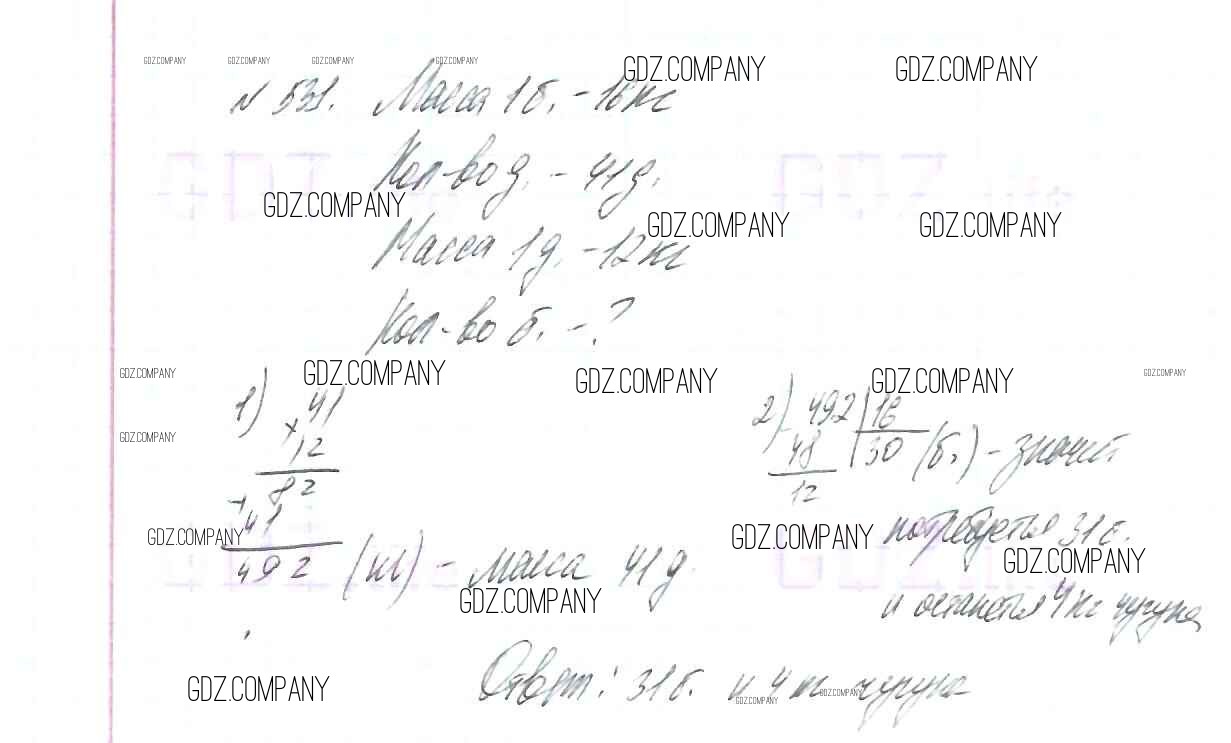 GDZ.COMPANY GDZ.COMPANY GDZ.COMPANY GDZ.COMPANY GDZ.COMPANY GDZ.COMPANY
N 531. Масса 1б. - 16кг
Кол-во д. - 41д.
GDZ.COMPANY GDZ.COMPANY GDZ.COMPANY
Масса 1д. - 12кг
Кол-во б. - ?
GDZ.COMPANY GDZ.COMPANY GDZ.COMPANY GDZ.COMPANY GDZ.COMPANY
1) 41
× 12
82
+ 41
492 (кг) - масса 41д.
GDZ.COMPANY
2) 492 | 16
- 48 | 30 (б.) - значит
12
потребуется 31б.
и останется 4 кг чугуна
GDZ.COMPANY GDZ.COMPANY GDZ.COMPANY
GDZ.COMPANY
Ответ: 31б. и 4 кг чугуна
GDZ.COMPANY GDZ.COMPANY GDZ.COMPANY